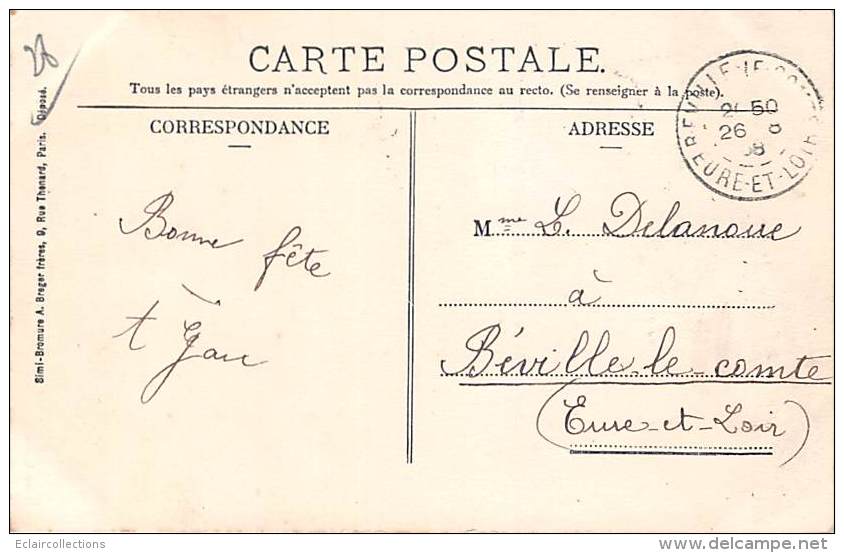 28
CARTE POSTALE.
Tous les pays étrangers n'acceptent pas la correspondance au recto. (Se renseigner à la poste).
CORRESPONDANCE
ADRESSE
BÉVILLE-LE-COMTE
2*50
26 8
08
EURE-ET-LOIR
Simi-Bromure A. Breger frères, 9, Rue Thenard, Paris. Déposé.
Bonne
fête
Mme L. Delanoue
à
Béville-le-comte
(Eure-et-Loir)
Eclaircollections
www.delcampe.net